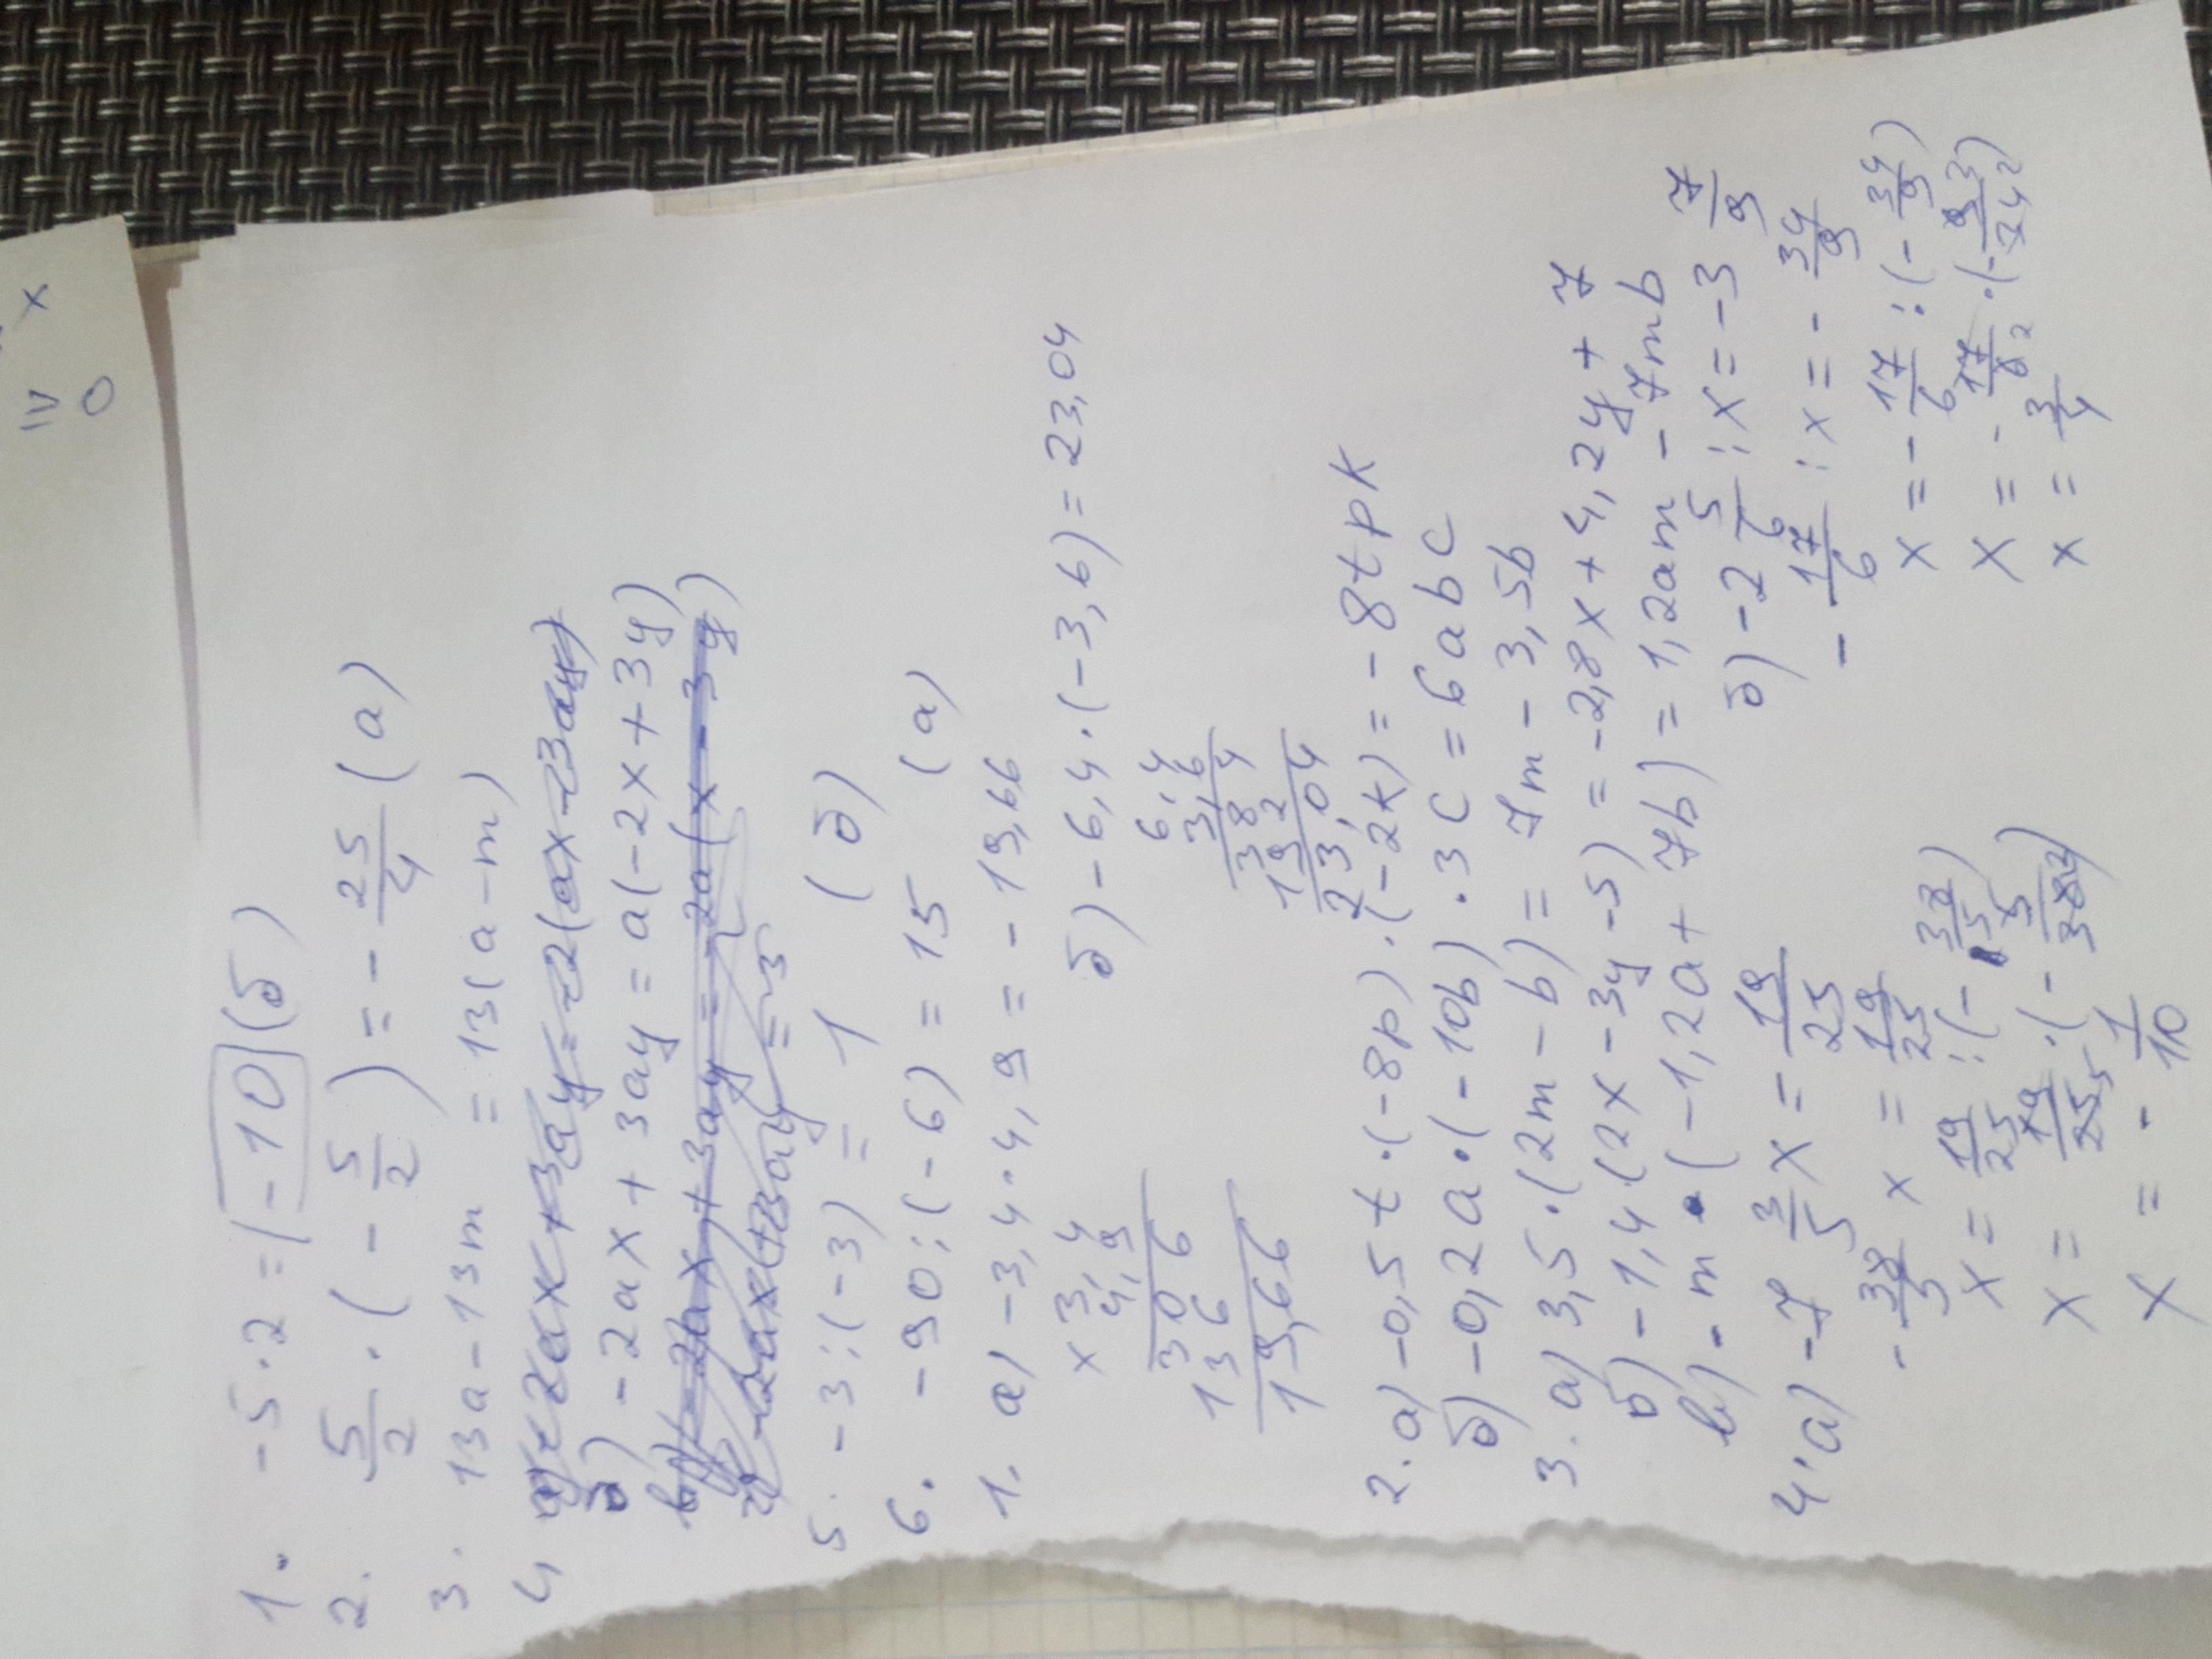 x
≥
0
1. -5·2=|-10|(б)
2. 5/2·(-5/2)=-25/4(а)
3. 13a-13m = 13(a-m)
б) -2ax+3ay=a(-2x+3y)
5. -3:(-3)=1 (б)
6. -90:(-6)=15 (а)
1. а) -3,4·4,9=-19,66
б) -6,4·(-3,6)=23,04
×3,4
4,9
306
136
19,66
6,4
3,6
384
192
23,04
2. а) -0,5t·(-8p)·(-2k)=-8tpk
б) -0,2a·(-10b)·3c=6abc
3. а) 3,5·(2m-b)=7m-3,5b
б) -1,4·(2x-3y-5)=-2,8x+4,2y+7
в) -m·(-1,2a+7b)=1,2am-7mb
4. а) -7 3/5 x=-19/25
-38/5 x=19/25
x=19/25:(-38/5)
x=19/25·(-5/38)
x=-1/10
б) -2 5/6:x=-3 7/9
-17/6:x=-34/9
x=-17/6:(-34/9)
x=-17/6·(-9/34)
x=3/4